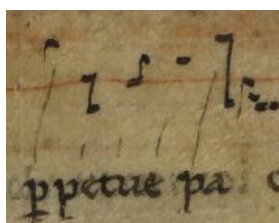 ꝑpetue pa